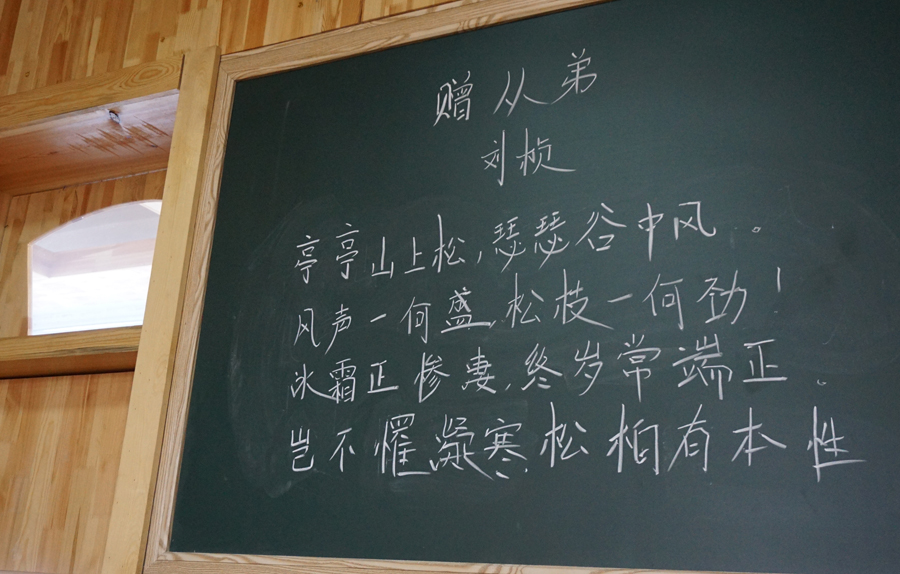 赠从弟
刘桢
亭亭山上松,瑟瑟谷中风。
风声一何盛,松枝一何劲!
冰霜正惨凄,终岁常端正。
岂不罹凝寒,松柏有本性